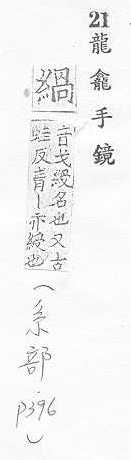 21 龍龕手鏡
緺
音戈綬名也又古
蛙反青丨亦綬也
(糸部 p396)